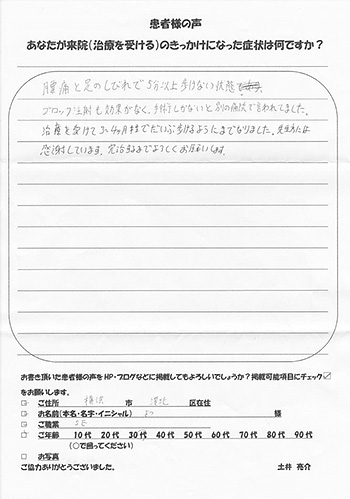 患者様の声
あなたが来院（治療を受ける）のきっかけになった症状は何ですか？
腰痛と足のしびれで5分以上歩けない状態で
ブロック注射も効果がなく、手術しかないと別の病院で言われてました。
治療を受けて3、4ヶ月程でだいぶ歩けるようにまでなりました。先生方には
感謝しています。完治するまでよろしくお願いします。
お書き頂いた患者様の声をHP・ブログなどに掲載してもよろしいでしょうか？掲載可能項目にチェック
をお願いします。
□ ご住所 横浜 市 港北 区在住
□ お名前（本名・名字・イニシャル） 様
□ ご職業
□ ご年齢 10代 20代 30代 40代 50代 60代 70代 80代 90代
（○で囲ってください）
□ お写真
ご協力ありがとうございました。 土井 亮介